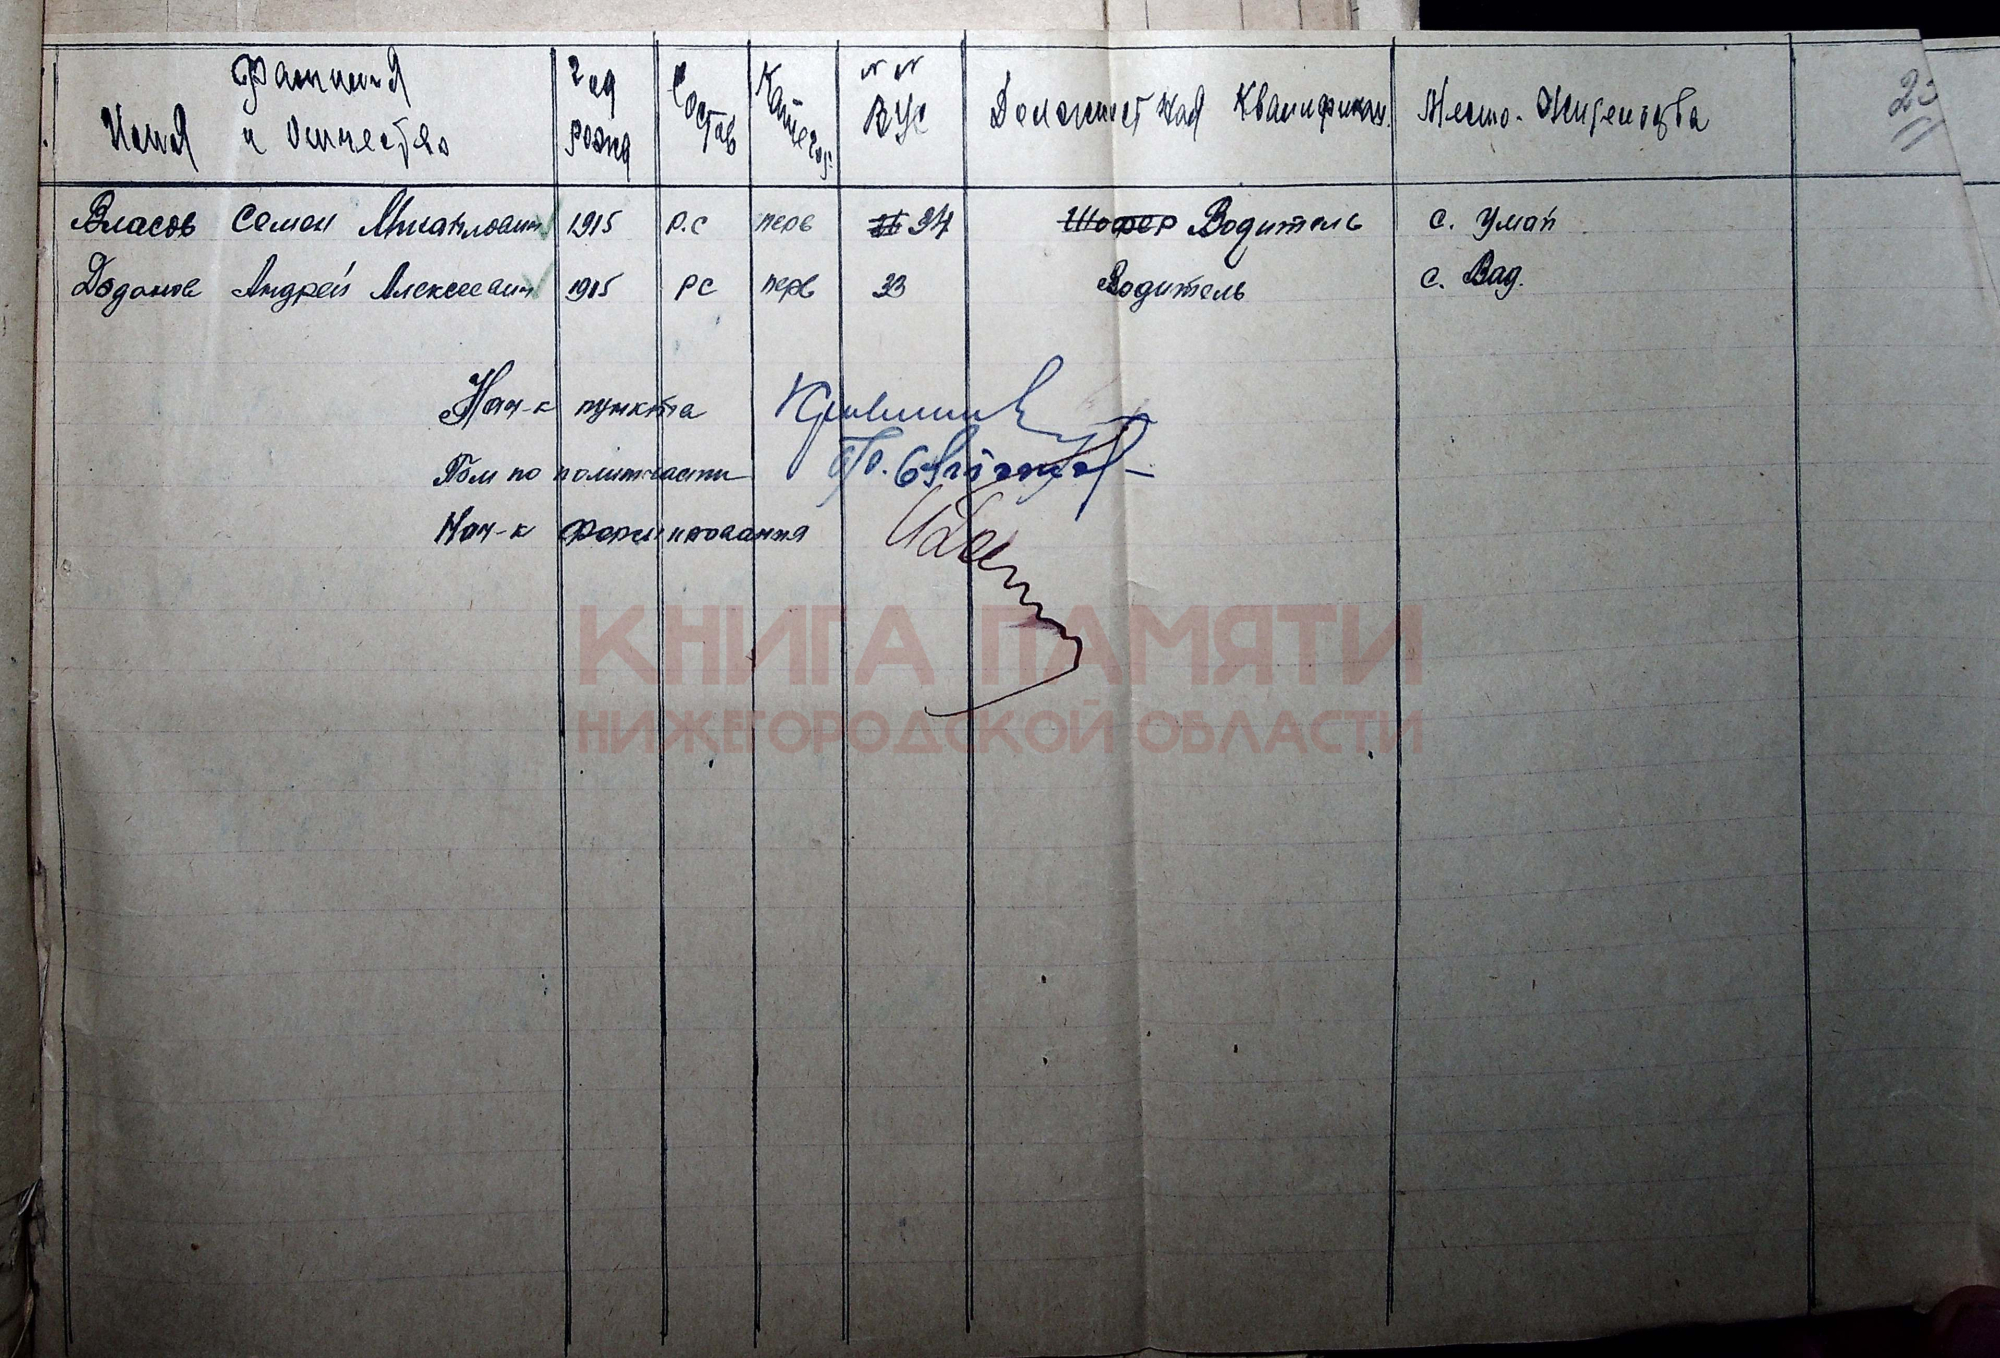 Фамилия
Имя и Отчество
Год рожд
Состав
Категор.
№ № ВУС
Должностная Квалификац.
Место-Жительства
23
Власов Семен Михайлович 1915 Р.С перв 34 Шофер Водитель с. Умай
Додонов Андрей Алексеевич 1915 РС перв 33 Водитель с. Вад.
Нач-к пункта
Пом по политчасти
Нач-к формирования
КНИГА ПАМЯТИ
НИЖЕГОРОДСКОЙ ОБЛАСТИ